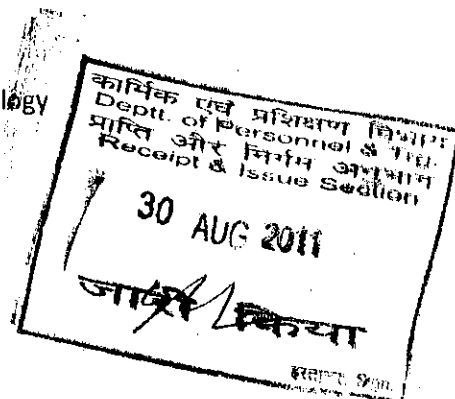 कार्मिक एवं प्रशिक्षण विभाग
Deptt. of Personnel &
प्राप्ति और निर्गम अनुभाग
Receipt & Issue Section
30 AUG 2011
जारी किया